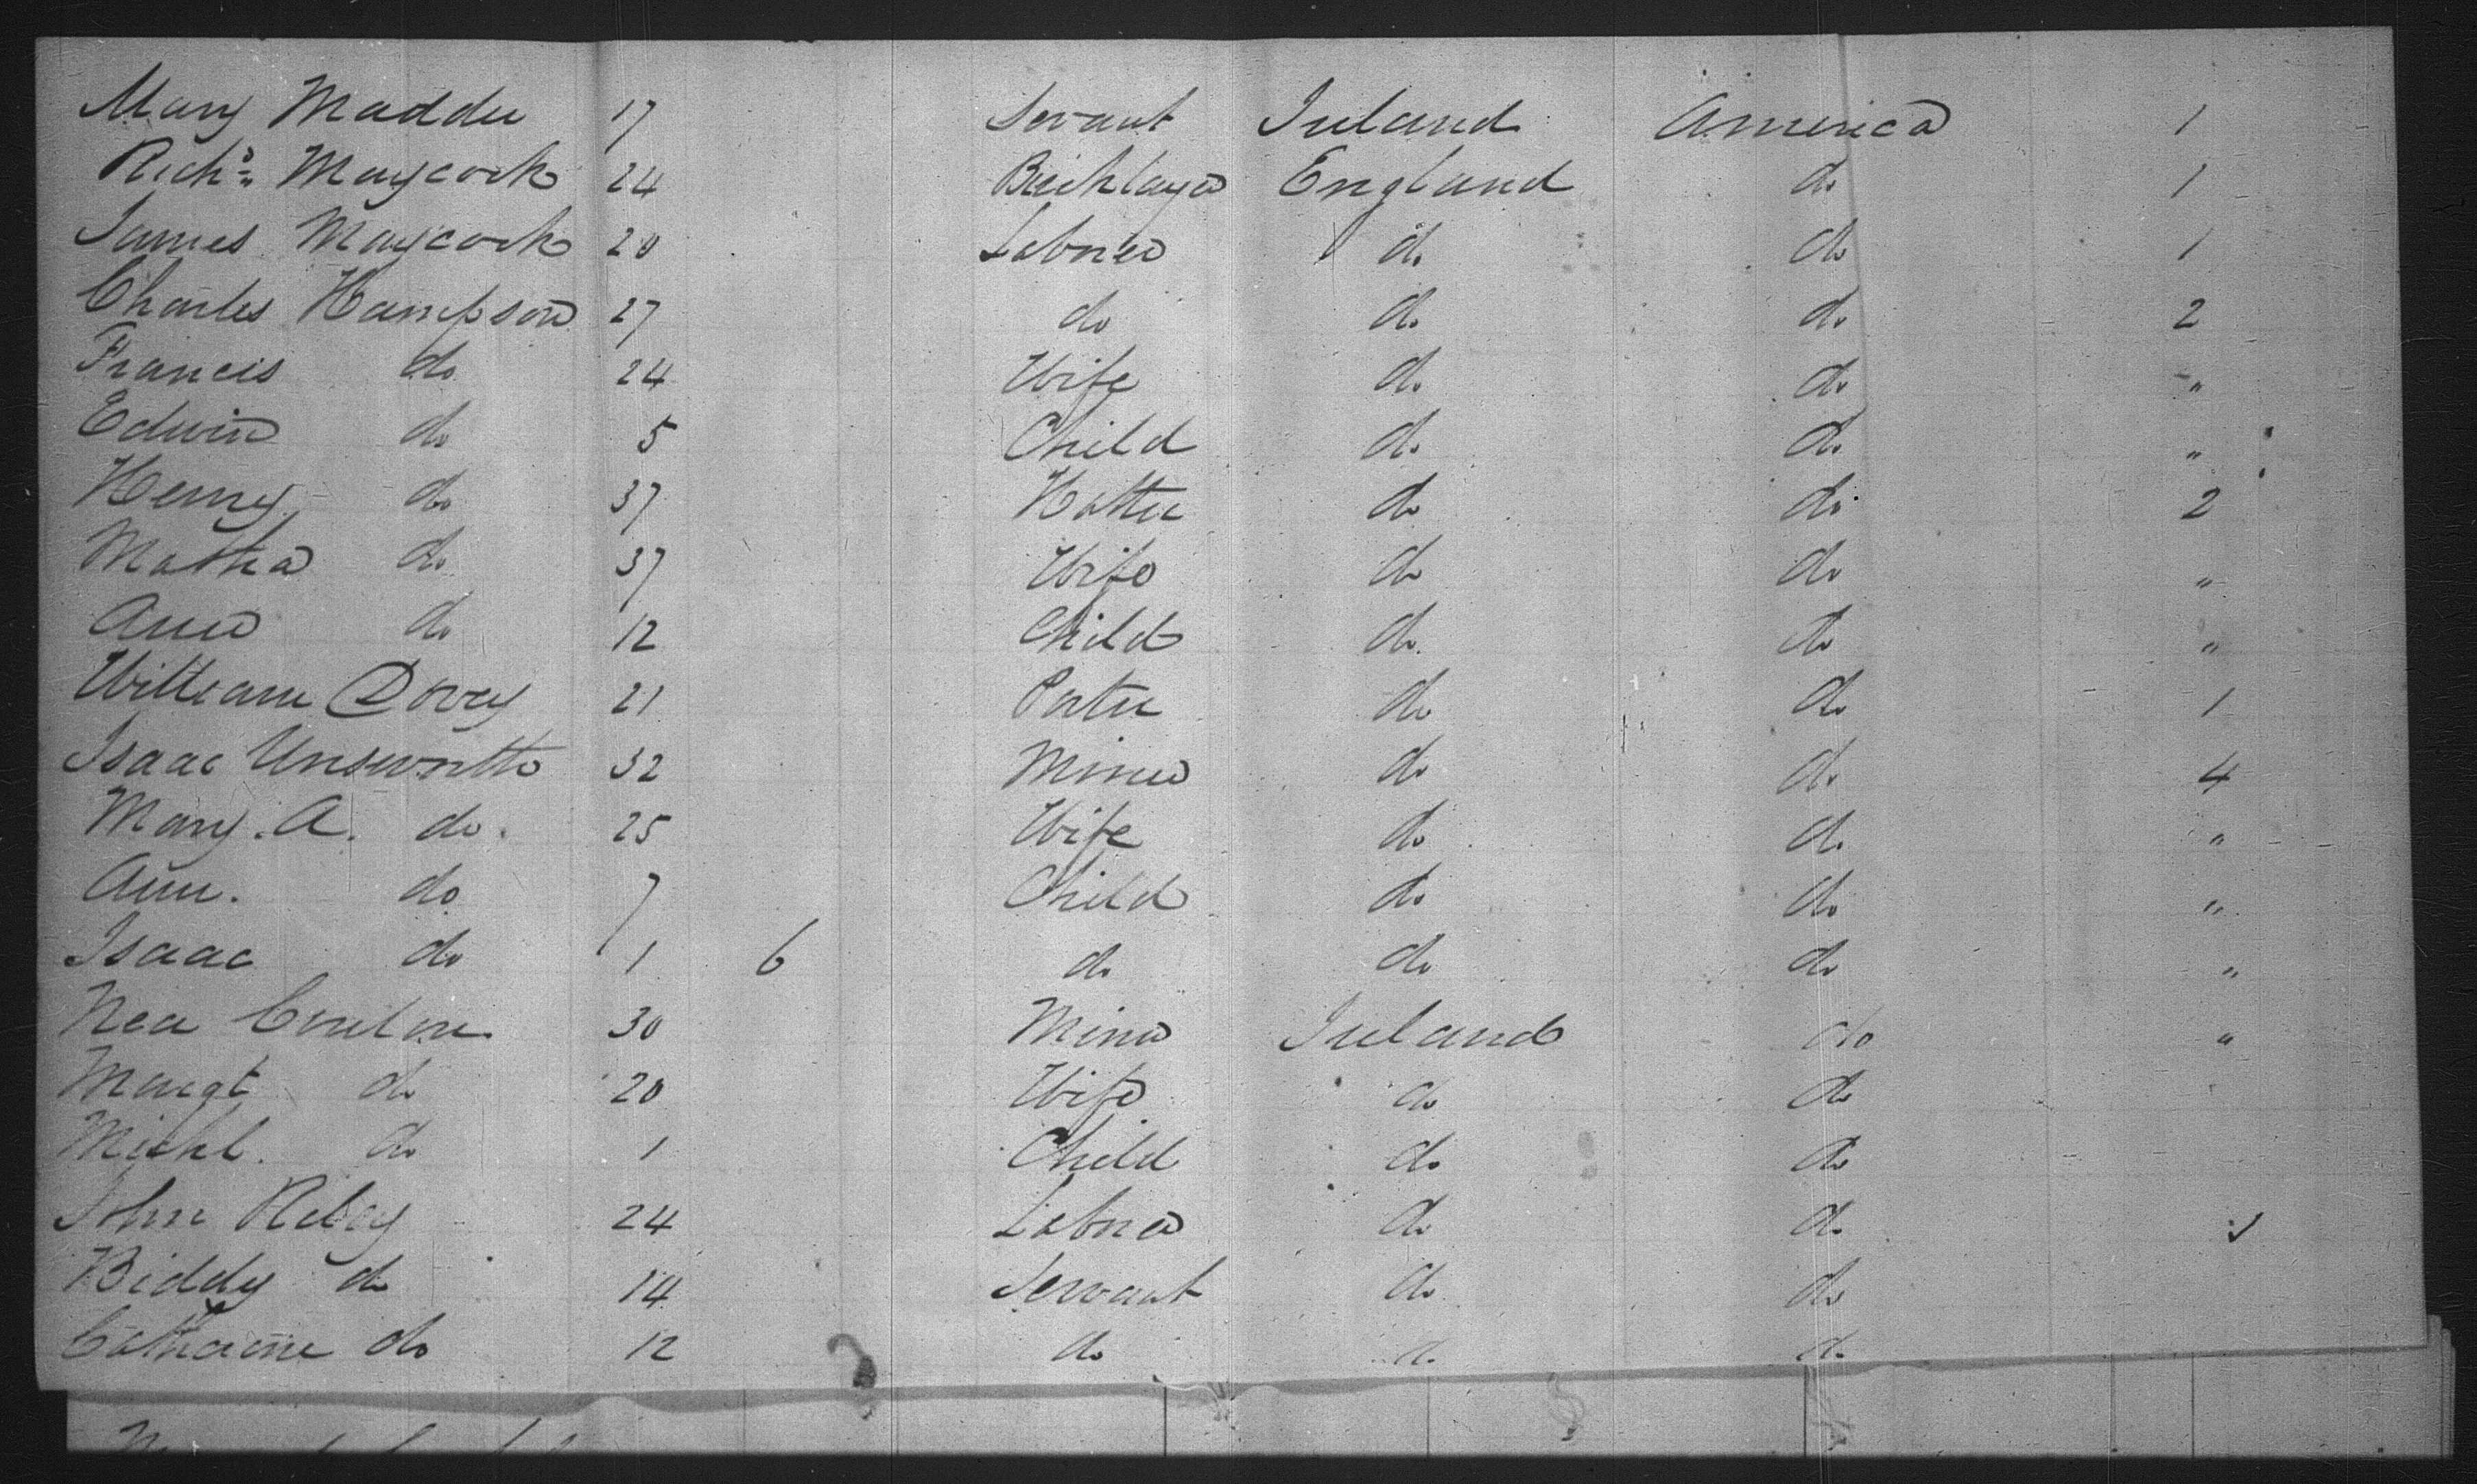 Mary Madden 17 Servant Ireland America 1
Richd. Maycock 24 Bricklayer England do 1
James Maycock 20 Laborer do do 1
Charles Hampson 27 do do do 2
Francis do 24 Wife do do "
Edwin do 5 Child do do "
Henry do 37 Hatter do do 2
Martha do 37 Wife do do "
Ann do 12 Child do do "
William Dovey 21 Porter do do 1
Isaac Unsworth 32 Miner do do 4
Mary. A. do. 25 Wife do do "
Ann. do 7 Child do do "
Isaac do 1 6 do do do "
30 Miner Ireland do "
Margt do 20 Wife do do
Michl. do 1 Child do do
John Riley 24 Laborer do do
Biddy do 14 Servant do do
Catharine do 12 do do do